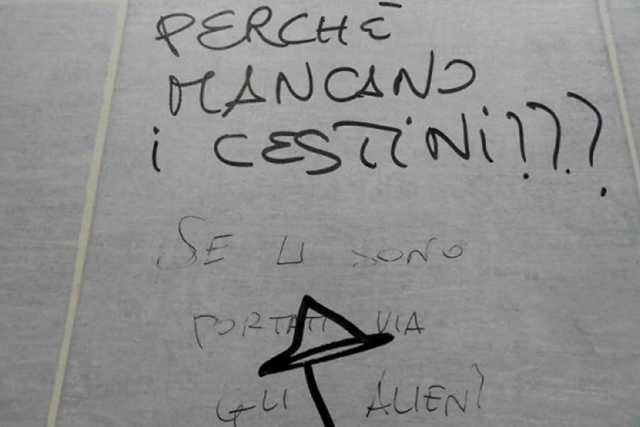 PERCHÈ
MANCANO
i CESTiNi???
SE LI SONO
PORTATI VIA
GLI ALIENI